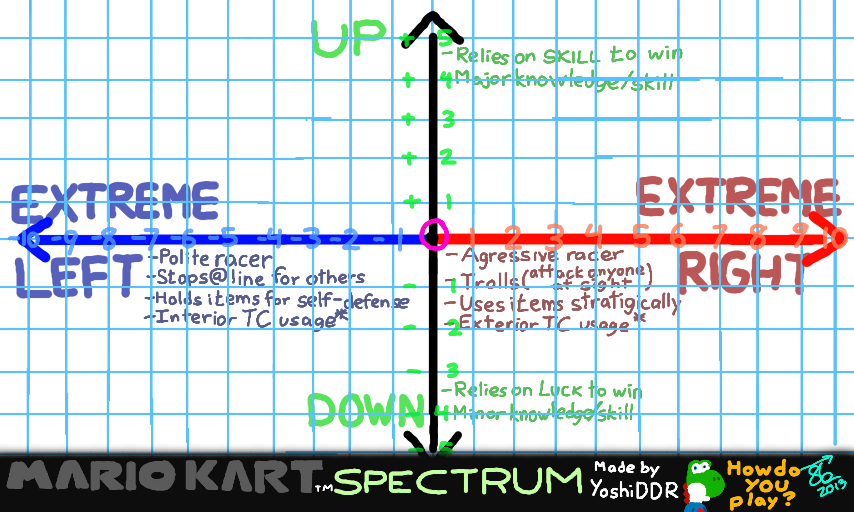 UP
+ 5
-Relies on SKILL to win
+ 4
-Major knowledge/skill
+ 3
+ 2
+ 1
EXTREME
EXTREME
-10 -9 -8 -7 -6 -5 -4 -3 -2 -1
1 2 3 4 5 6 7 8 9 10
LEFT
RIGHT
-Polite racer
-Stops@line for others
-Holds items for self-defense
-Interior TC usage*
-Agressive racer
-Trolls(attack anyone
at sight)
-Uses items stratigically
-Exterior TC usage*
- 1
- 2
- 3
-Relies on LUCK to win
DOWN
- 4
-Minor knowledge/skill
- 5
MARIO KART™ SPECTRUM
Made by
YoshiDDR
How do
YOU
play?
2013